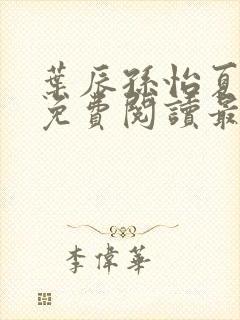 葉辰孫怡夏
免費閱讀最
李偉華